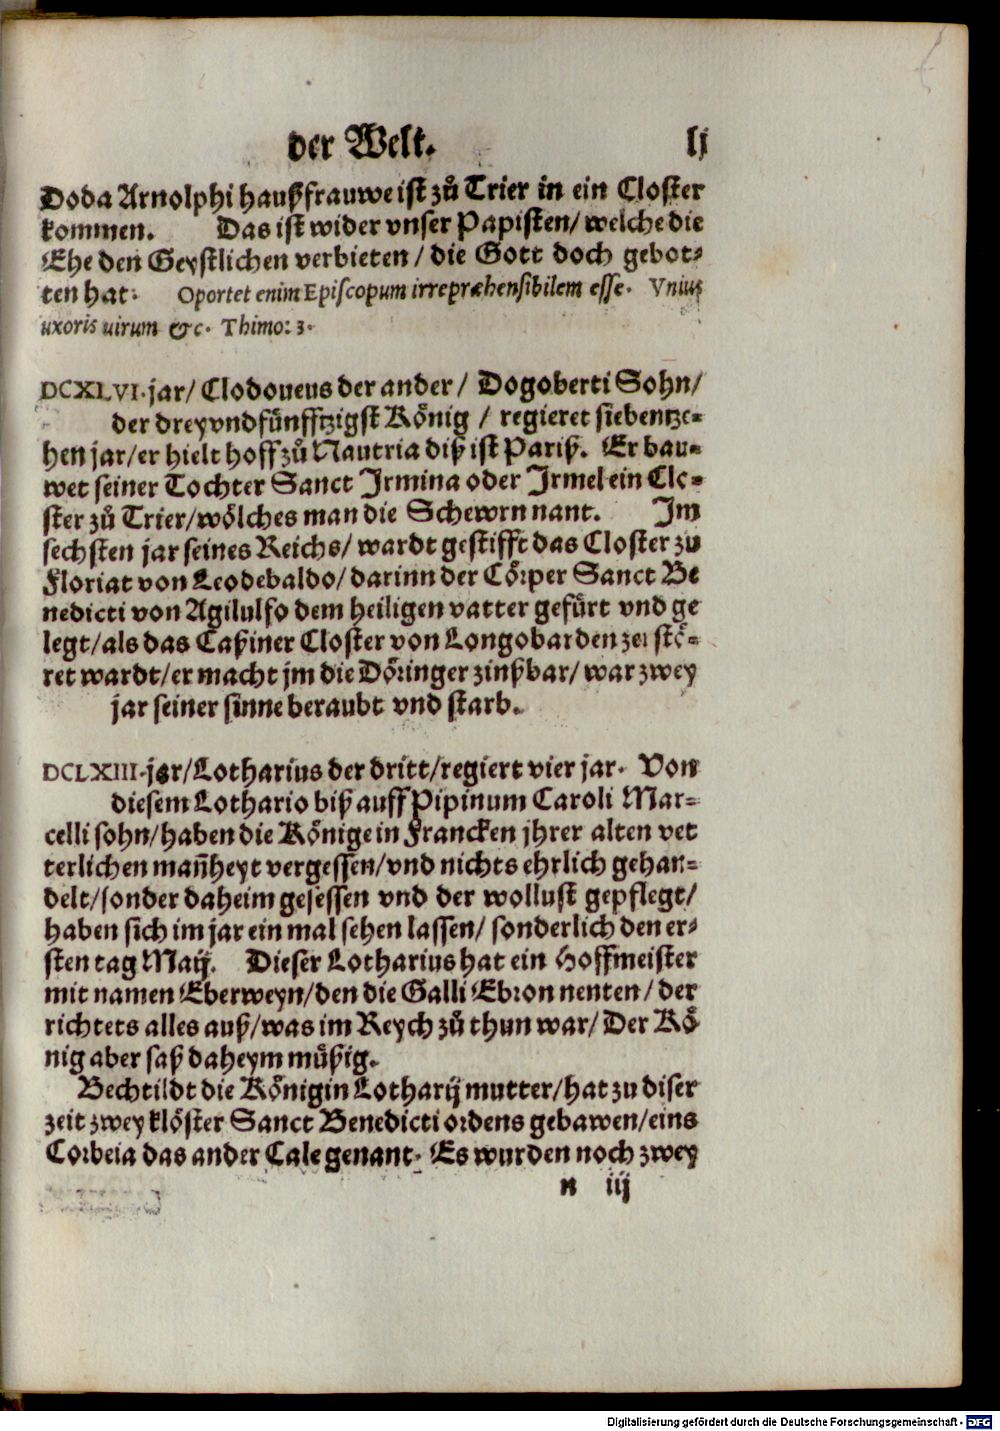 der Welt. lj
Doda Arnolphi haußfrauwe ist zů Trier in ein Closter
kommen. Das ist wider vnser Papisten/ welche die
Ehe den Geystlichen verbieten/ die Gott doch gebot-
ten hat. Oportet enim Episcopum irrepræhensibilem esse. Vnius
uxoris uirum &c. Thimo: 3.
DCXLVI. jar/ Clodoueus der ander/ Dogoberti Sohn/
der dreyvndfünfftzigst König / regieret siebentze-
hen jar/ er hielt hoff zů Nautria diß ist Pariß. Er bau-
wet seiner Tochter Sanct Irmina oder Irmel ein Clo-
ster zů Trier/ wölches man die Schewrn nant. Im
sechsten jar seines Reichs/ wardt gestifft das Closter zu
Floriat von Leodebaldo/ darinn der Cörper Sanct Be
nedicti von Agilulfo dem heiligen vatter gefürt vnd ge
legt/ als das Caßiner Closter von Longobarden zerstö-
ret wardt/ er macht jm die Döringer zinßbar/ war zwey
jar seiner sinne beraubt vnd starb.
DCLXIII. jar/ Lotharius der dritt/ regiert vier jar. Von
diesem Lothario biß auff Pipinum Caroli Mar-
celli sohn/ haben die Könige in Francken jhrer alten vet
terlichen man̄heyt vergessen/ vnd nichts ehrlich gehan-
delt/ sonder daheim gesessen vnd der wollust gepflegt/
haben sich im jar ein mal sehen lassen/ sonderlich den er-
sten tag Maij. Dieser Lotharius hat ein Hoffmeister
mit namen Eberweyn/ den die Galli Ebron nenten/ der
richtets alles auß/ was im Reych zů thun war/ Der Kö
nig aber saß daheym müßig.
Bechtildt die Königin Lotharij mutter/ hat zu diser
zeit zwey klöster Sanct Benedicti ordens gebawen/ eins
Corbeia das ander Cale genant. Es wurden noch zwey
n iij
Digitalisierung gefördert durch die Deutsche Forschungsgemeinschaft - DFG